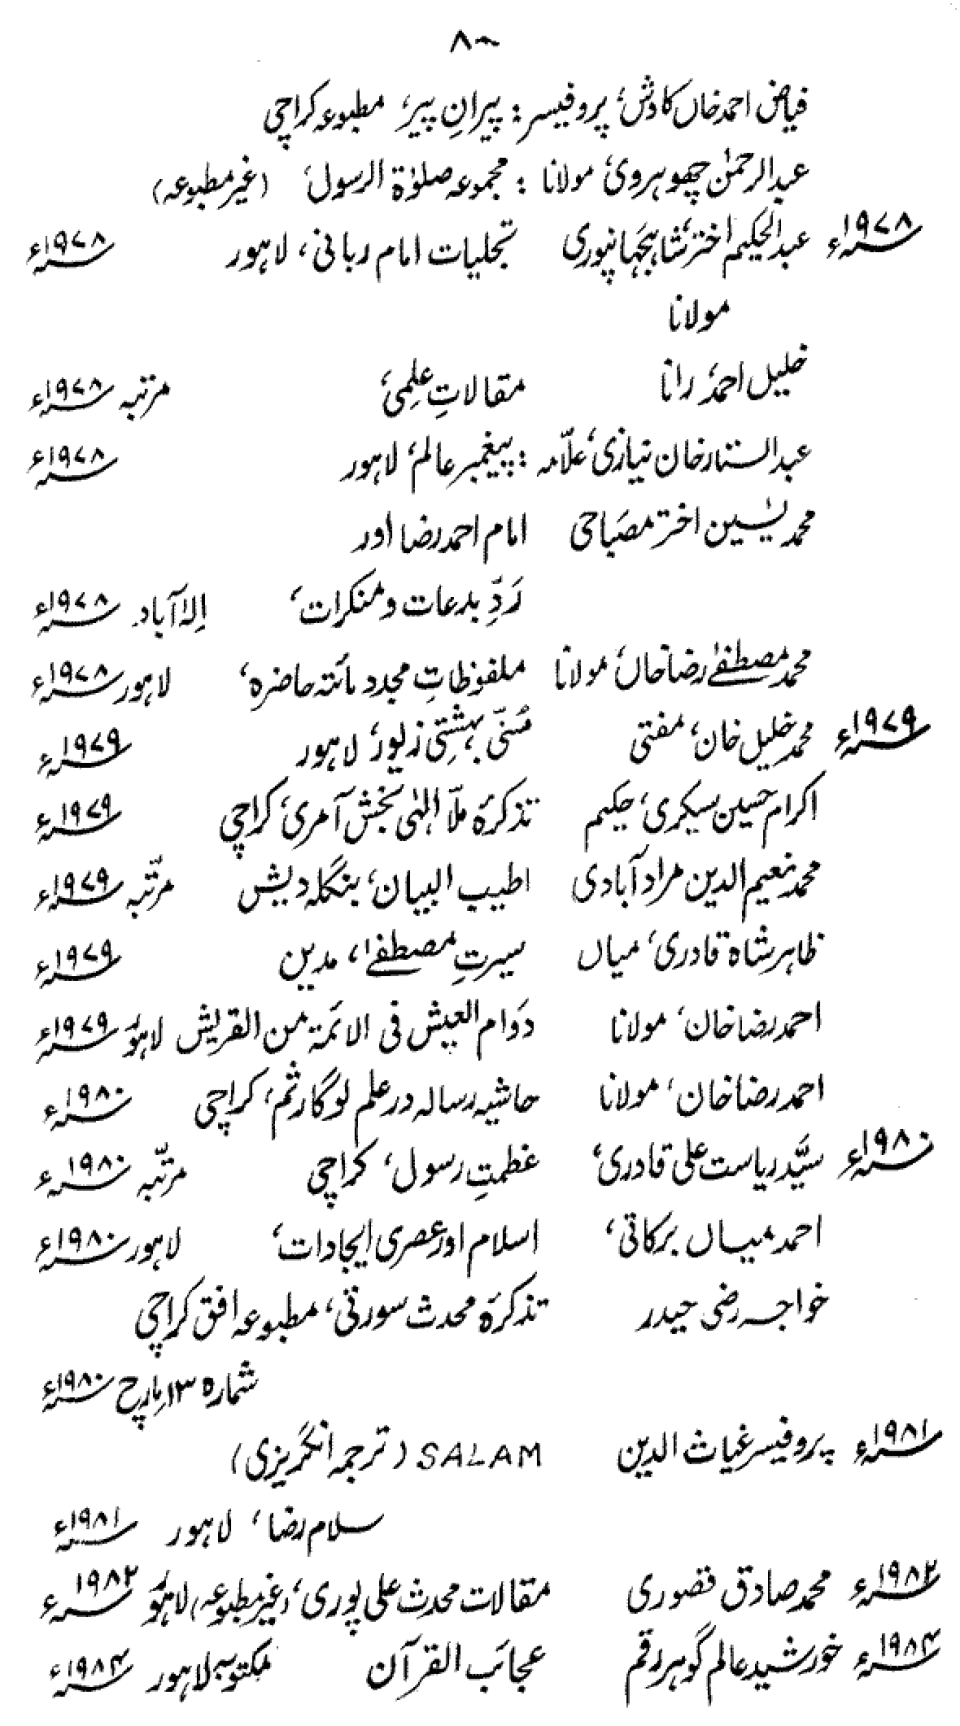 ۸۰
فیاض احمد خاں کاوش، پروفیسر: پیرانِ پیر، مطبوعہ کراچی
عبدالرحمٰن چھوہروی، مولانا : مجموعہ صلوٰۃ الرسول، (غیر مطبوعہ)
۱۹۷۸ء عبدالحکیم اختر، شاہجہانپوری تجلیات امام ربانی، لاہور ۱۹۷۸ء
مولانا
خلیل احمد، رانا مقالاتِ علمی، مرتبہ ۱۹۷۸ء
عبدالستار خان نیازی، علّامہ : پیغمبر عالم، لاہور ۱۹۷۸ء
محمد یٰسین اختر مصباحی امام احمد رضا اور
رَدِّ بدعات و منکرات، الہٰ آباد ۱۹۷۸ء
محمد مصطفےٰ رضا خاں، مولانا ملفوظاتِ مجدد مائتہ حاضرہ، لاہور ۱۹۷۸ء
۱۹۷۹ء محمد خلیل خان، مفتی سُنّی بہشتی زیور، لاہور ۱۹۷۹ء
اکرام حسین سیکری، حکیم تذکرۂ ملّا الٰہی بخش آمری، کراچی ۱۹۷۹ء
محمد نعیم الدین مرادآبادی اطیب البیان، بنگلہ دیش مرتّبہ ۱۹۷۹ء
ظاہر شاہ قادری، میاں سیرتِ مصطفےٰ، مدین ۱۹۷۹ء
احمد رضا خان، مولانا دَوام العیش فی الائمۃ من القریش لاہور ۱۹۷۹ء
احمد رضا خان، مولانا حاشیہ رسالہ در علم لوگارثم، کراچی ۱۹۸۰ء
۱۹۸۰ء سیّد ریاست علی قادری، عظمتِ رسول، کراچی مرتّبہ ۱۹۸۰ء
احمد میاں برکاتی، اسلام اور عصری ایجادات، لاہور ۱۹۸۰ء
خواجہ رضی حیدر تذکرۂ محدث سورتی، مطبوعہ افق کراچی
شمارہ ۱۳ مارچ ۱۹۸۰ء
۱۹۸۱ء پروفیسر غیاث الدین SALAM (ترجمہ انگریزی)
سلام رضا، لاہور ۱۹۸۱ء
۱۹۸۲ء محمد صادق قصوری مقالات محدث علی پوری، (غیر مطبوعہ) لاہور ۱۹۸۲ء
۱۹۸۴ء خورشید عالم گوہر رقم عجائب القرآن مکتوبہ لاہور ۱۹۸۴ء